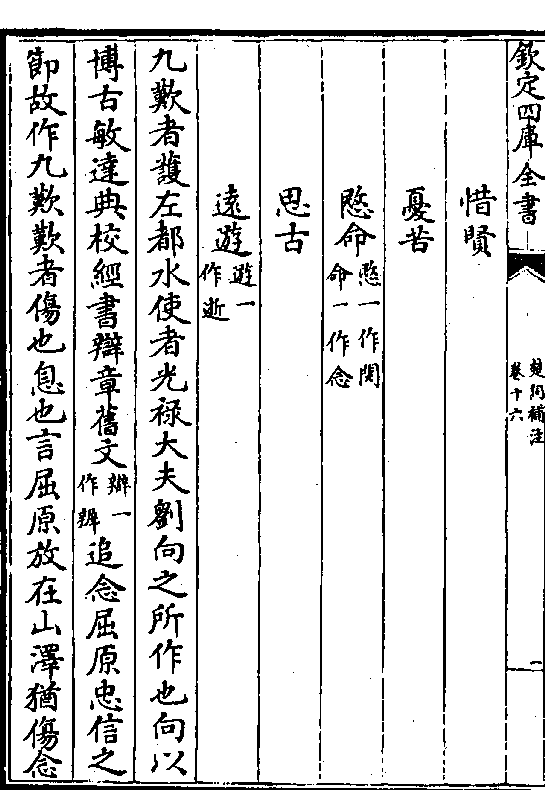 欽定四庫全書
楚詞補注
卷十六
一
惜賢
憂苦
愍命愍一作閔命一作念
思古
遠遊遊一作逝
九歎者護左都水使者光禄大夫劉向之所作也向以
博古敏達典校經書辯章舊文辯一作辨追念屈原忠信之
節故作九歎歎者傷也息也言屈原放在山澤猶傷念